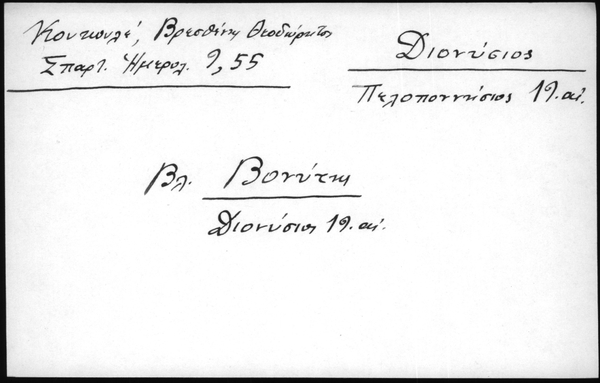 Κουτουλέ, Βρεσθένης Θεοδώρητος
Σπαρτ. Ημερολ. 9, 55
Διονύσιος
Πελοποννήσιος 19. αἰ.
Βλ. Βονύτης
Διονύσιος 19. αἰ.